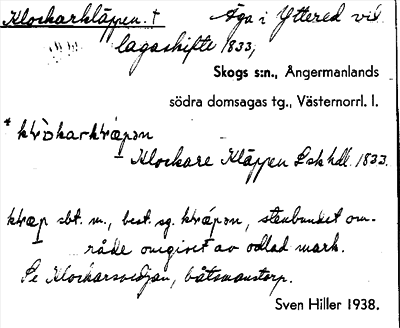 Klockarkläppen. † Äga i Yttered vid
lagaskifte 1833,
Skogs s:n., Ångermanlands
södra domsagas tg., Västernorrl. l.
Klockare Kläppen Lskhdl. 1833.
sbt. m., best. sg. stenbundet om-
råde omgivet av odlad mark.
Se Klockarsvedjan, båtsmanstorp.
Sven Hiller 1938.